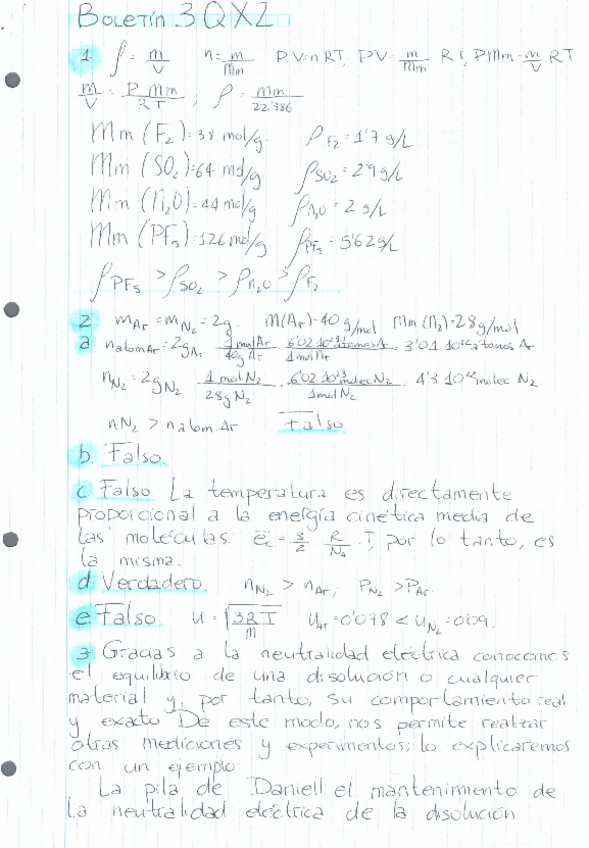 BOLETÍN 3 QXZ
1. ρ = m/V n = m/Mm P.V = n RT, PV = m/Mm RT, PMm = m/V RT
m/V = P Mm/RT ; ρ = Mm/22'386
Mm (F₂) = 38 mol/g. ρF₂ = 1'7 g/L
Mm (SO₂) = 64 mol/g ρSO₂ = 2'9 g/L
Mm (N₂O) = 44 mol/g ρN₂O = 2 g/L
Mm (PF₅) = 126 mol/g. ρPF₅ = 5'62 g/L
ρPF₅ > ρSO₂ > ρN₂O > ρF₂
2 mAr = mN₂ = 2g. M(Ar) = 40 g/mol Mm (N₂) = 28 g/mol
a natom Ar = 2gAr 1 mol Ar/40g Ar 6'02 10²³ atomos A/1 mol Ar 3'01 10²² atomos Ar
nN₂ = 2gN₂ 1 mol N₂/28g N₂ 6'02 10²³ molec N₂/1mol N₂ 4'3 10²² molec N₂
nN₂ > natom. Ar Falso
b. Falso.
c Falso La temperatura es directamente
proporcional a la energía cinética media de
las moléculas: ec = 3/2 R/NA T, por lo tanto, es
la misma.
d Verdadero. nN₂ > nAr; PN₂ > PAr.
e Falso u = √3RT/M uAr = 0'078 < uN₂ = 0'09.
3 Gracias a la neutralidad eléctrica conocemos
el equilibrio de una disolución o cualquier
material y, por tanto, su comportamiento real
y exacto De este modo, nos permite realizar
otras mediciones y experimentos; lo explicaremos
con un ejemplo:
La pila de Daniell: el mantenimiento de
la neutralidad eléctrica de la disolución